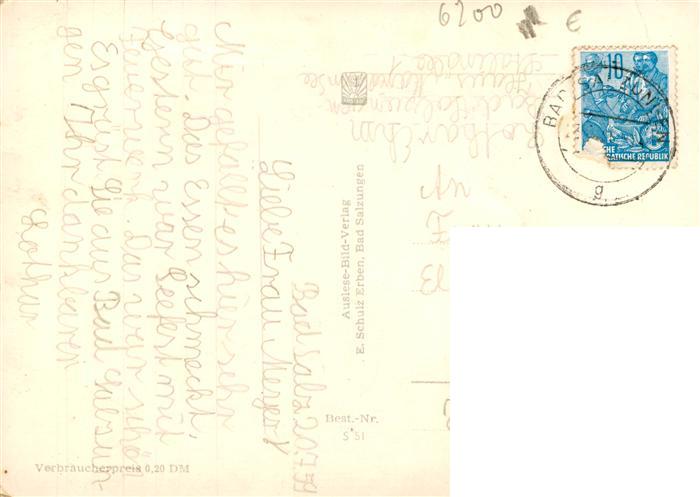 6200 €
Bad Salz 20.7.59
Liebe Frau Mergot
Mir gefällt es hier sehr
gut. Das Essen schmeckt,
Gestern war Seefest mit
Feuerwerk. Das war schön
Es grüßt Sie aus Bad Salzun-
gen Ihr dankbarer
Lothar
Lothar Ehm
Bad Salzungen
Haus
Auslese-Bild-Verlag
E. Schulz Erben, Bad Salzungen
Best.-Nr.
S 51
Verbraucherpreis 0,20 DM
10
CHE
RATISCHE REPUBLIK
BAD SALZUNGEN
g